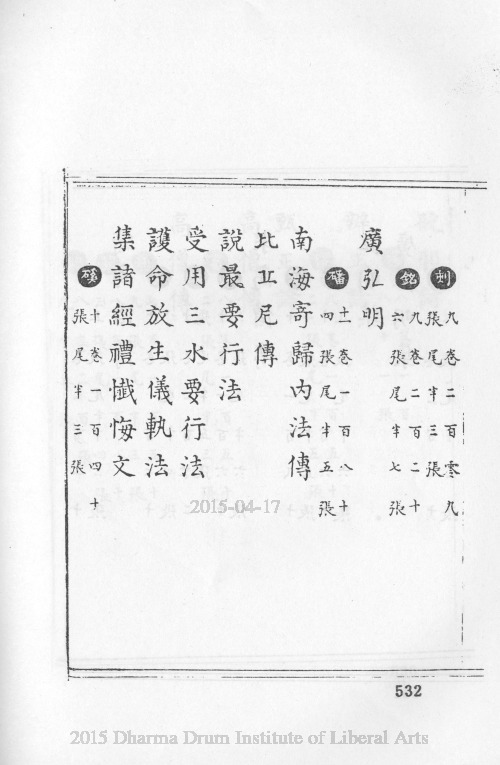 刻 九卷二百零九
張尾半三張
銘 九卷二百二十
六張尾半七張
廣弘明
磻 十一卷一百八十
四張尾半五張
南海寄歸內法傳
比丘尼傳
說最要行法
受用三水要行法
護命放生儀軌法
集諸經禮懺悔文
磎 十卷一百四十
張尾半三張
532
2015-04-17
2015 Dharma Drum Institute of Liberal Arts